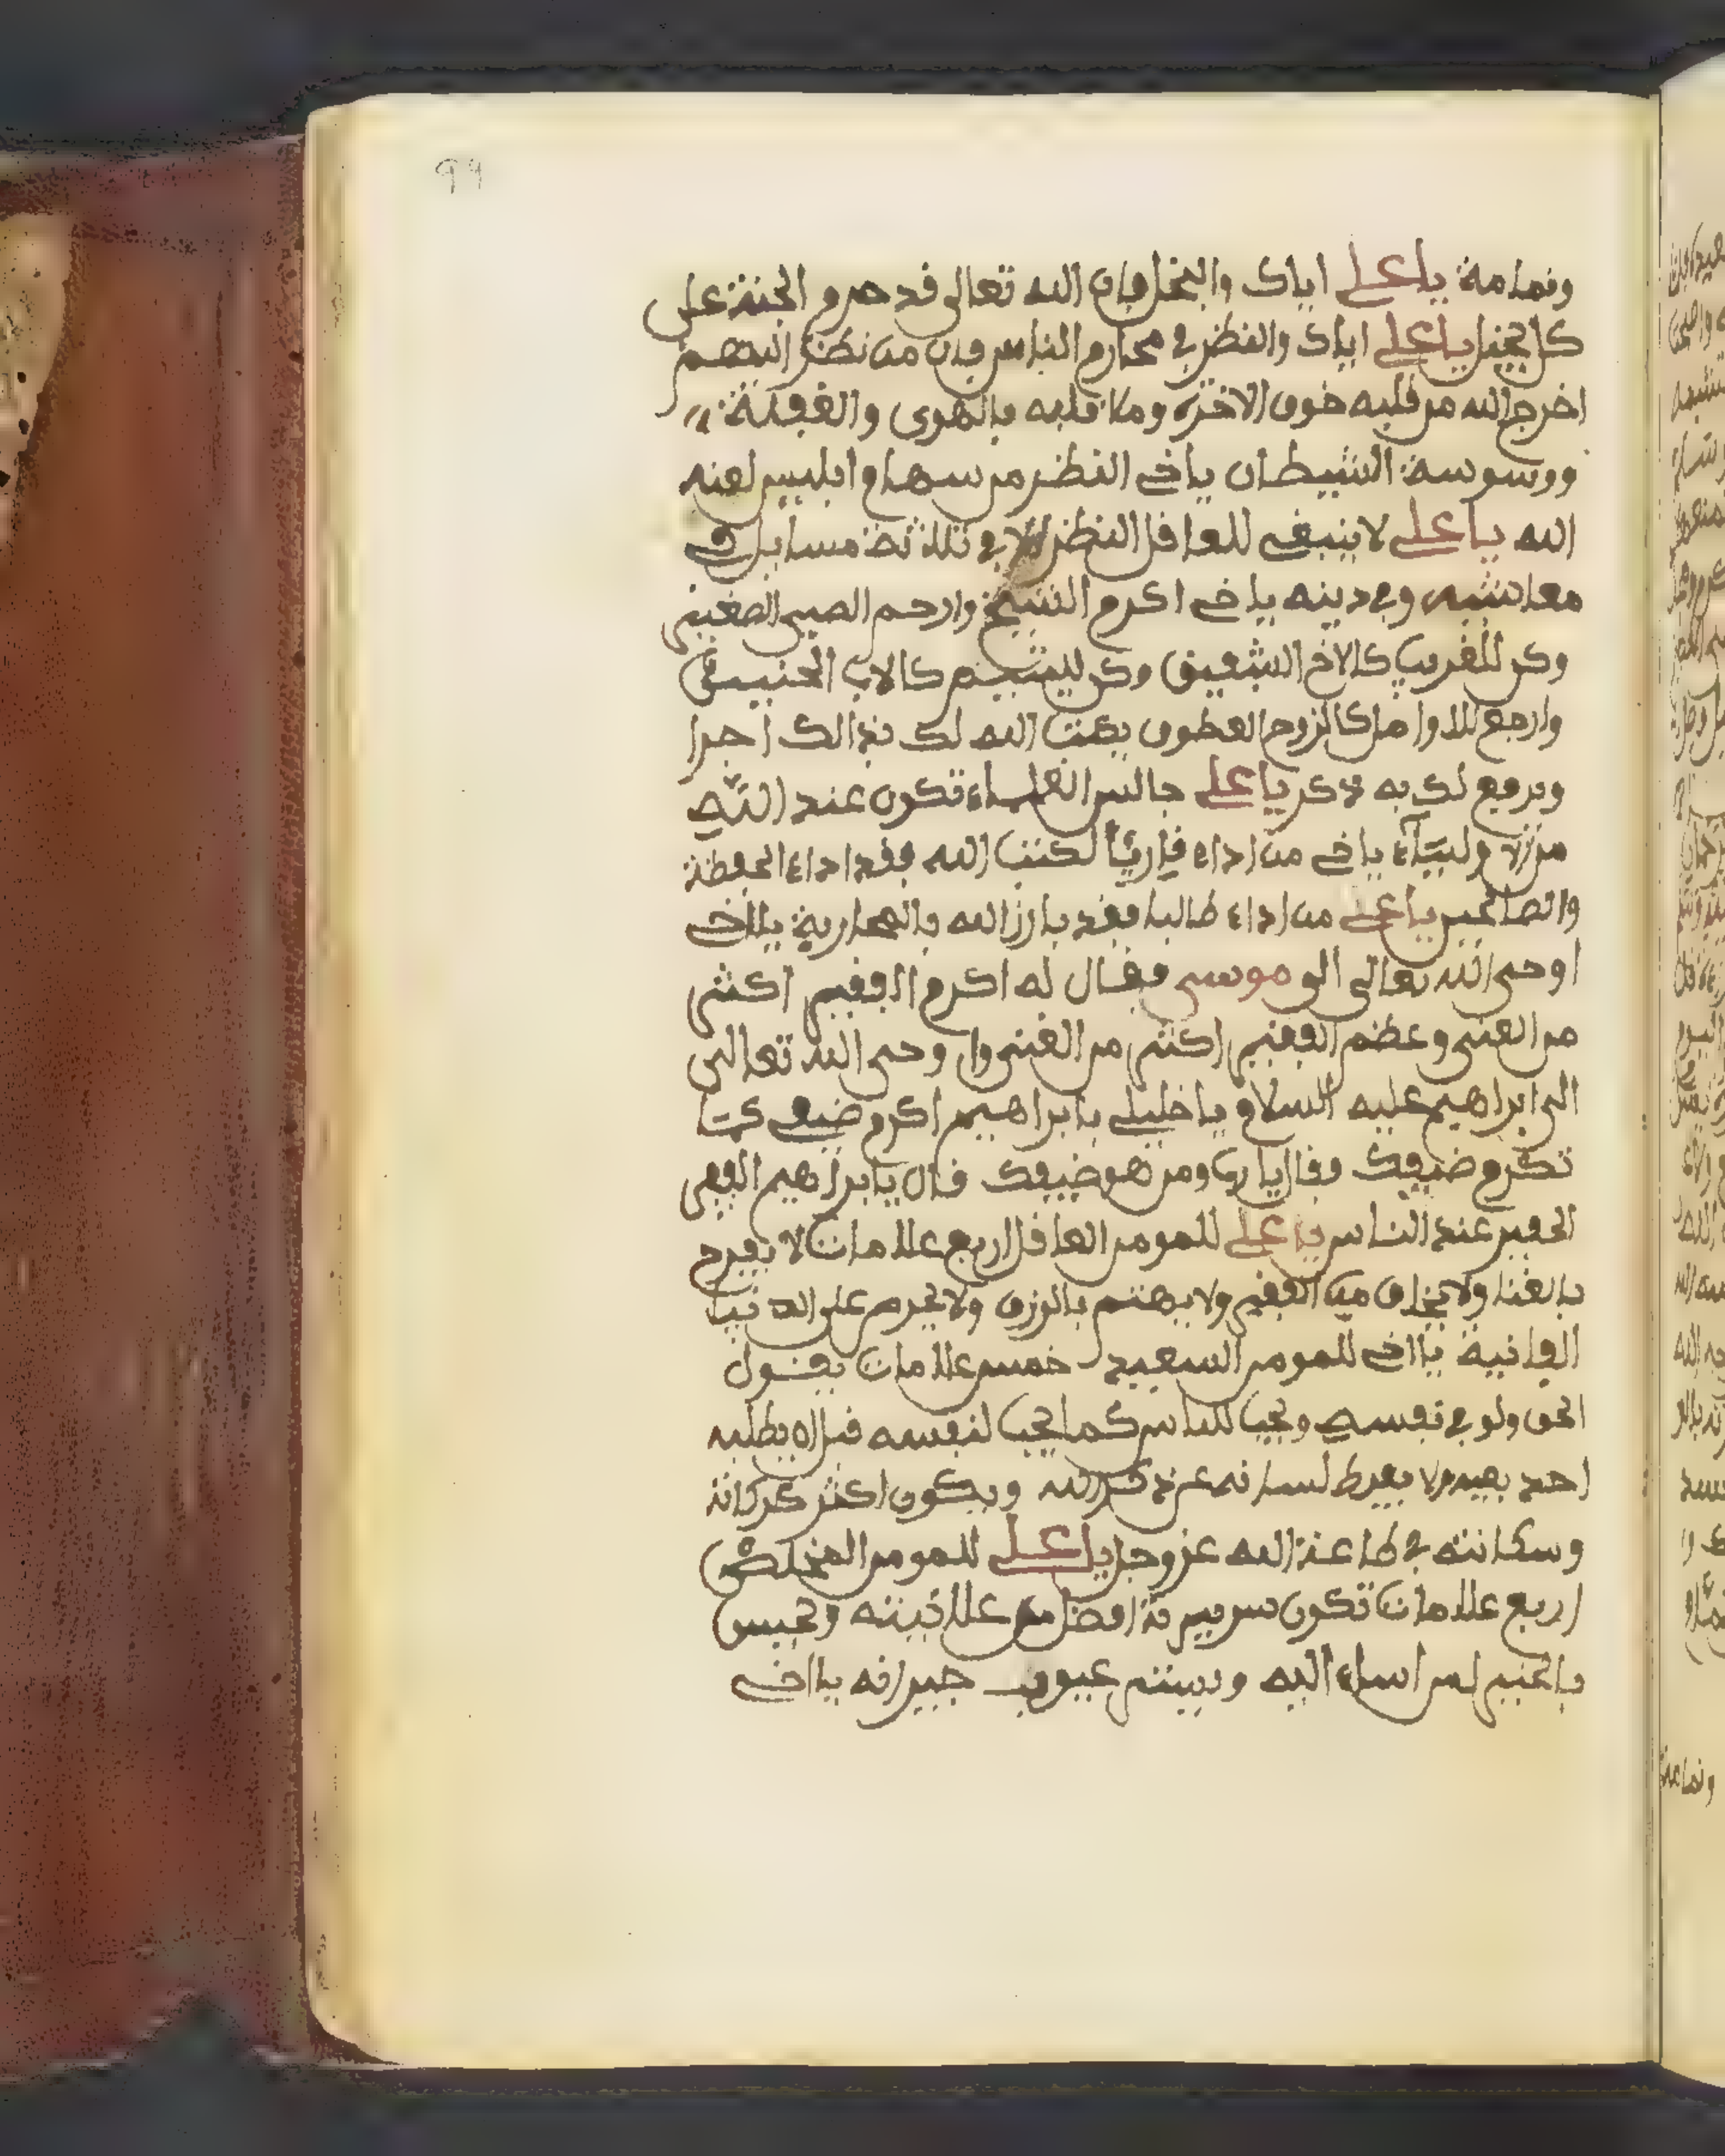 99
ونمامة يا علي اياك والبخل فان الله تعالى قد حرم الجنة على
كل بخيل يا علي اياك والنظر في محارم الناس فان من نظر اليهم
اخرج الله من قلبه خوف الاخرة وملا قلبه بالهوى والغفلة
ووسوسة الشيطان ياخي النظر من سهام ابليس لعنه
الله يا علي لا ينبغي للعاقل النظر الا في ثلاثة مسايل في
معاشه وفي دينه ياخي اكرم الشيخ وارحم الصبي الصغير
وكن للغريب كالاخ الشفيق وكن لليتيم كالاب الحنين
وارجع للاوامل كالزوج العطوف يكتب الله لك بذالك اجرا
ويرفع لك به ذكر يا علي جالس العلماء تكون عند الله
من الاولياء ياخي من اداء قاريا لكتب الله فقد اداء الحفظة
والصالحين يا علي من اداء طالبا فقد بارز الله بالمحاربة يااخي
اوحى الله تعالى الى موسى فقال له اكرم الفقير اكثر
من الغني وعظم الفقير اكثر من الغني واوحى الله تعالى
الى ابراهيم عليه السلام يا خليلي يا ابراهيم اكرم ضيفي كما
تكرم ضيفك فقال يا رب ومن هو ضيفك قال يا ابراهيم الفقير
الحقير عند الناس يا علي للمومن العاقل اربع علامات لا يفرح
بالغنا ولا يخاف من الفقير ولا يهتم بالرزق ولا يحرص على الدنيا
الفانية يااخي للمومن السعيد خمس علامات يقول
الحق ولو في نفسه ويحب للناس كما يحب لنفسه قبل ان يطلبه
احد بعيره ولا يفرط لسانه عن ذكر الله ويكون اكثر حركاته
وسكانته في طاعة الله عز وجل يا علي للمومن المخلص
اربع علامات تكون سريرته افضل من علانيته ويحسن
بالخير لمن اساء اليه ويستر عيوب جيرانه يااخي